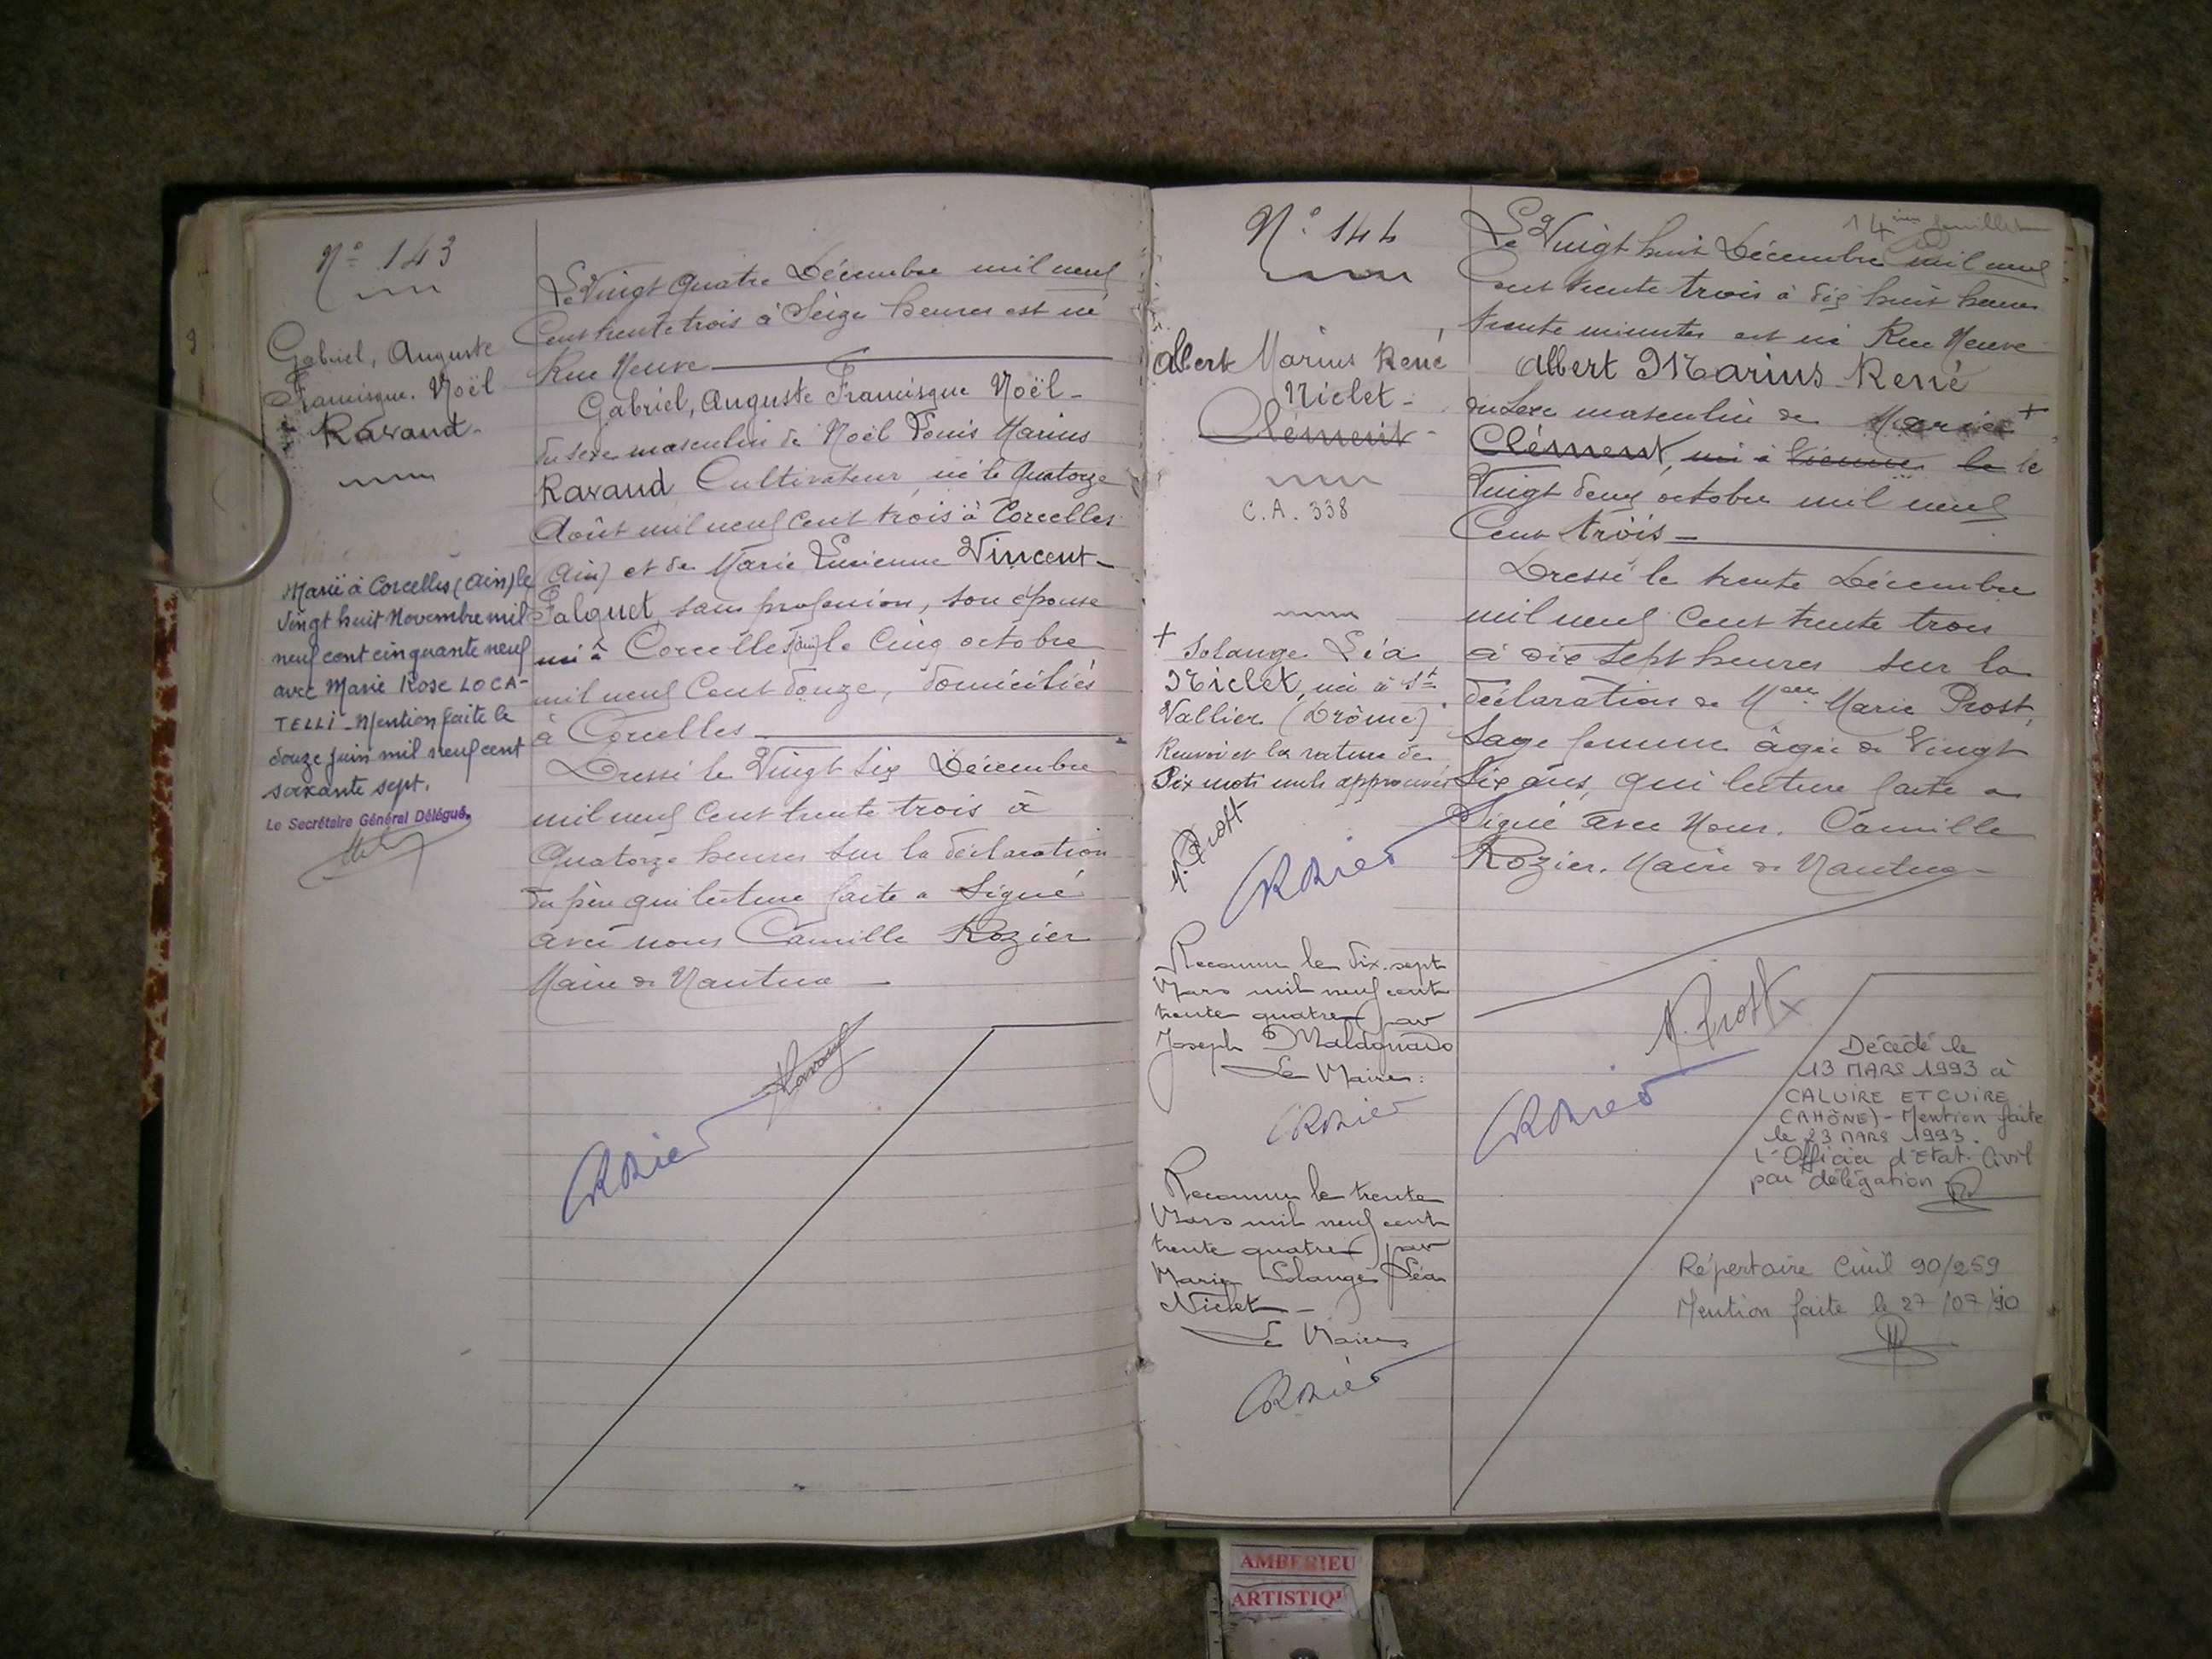 N° 143
Gabriel, Auguste
Francisque. Noël
Ravaud.
Marié à Corcelles (Ain) le
vingt huit Novembre mil
neuf cent cinquante neuf
avec Marie Rose LOCA-
TELLI - Mention faite le
douze juin mil neuf cent
soixante sept.
Le Secrétaire Général Délégué,
Le Vingt Quatre Décembre mil neuf
Cent trente trois à Seize heures est né
Rue Neuve
Gabriel, Auguste Francisque Noël -
du sexe masculin de Noël Louis Marius
Ravaud Cultivateur, né le Quatorze
Août mil neuf cent trois à Corcelles
(Ain) et de Marie Lucienne Vincent-
Falquet, sans profession, son épouse
née à Corcelles (Ain) le Cinq octobre
mil neuf Cent douze, domiciliés
à Corcelles
Dressé le Vingt Six Décembre
mil neuf Cent trente trois à
Quatorze heures sur la déclaration
du père qui lecture faite a Signé
avec nous Camille Rozier
Maire de Nantua
Ravaud
CRozier
14ième feuillet
N° 144
Albert Marius René
Niclet -
Clément -
C.A. 338
+ Solange Léa
Niclet, née à St
Vallier (Drôme).
Renvoi et la rature de
Six mots nuls approuvés
M. Prost
CRozier
Reconnu le dix-sept
Mars mil neuf cent
trente quatre par
Joseph Maldonado
Le Maire:
CRozier
Reconnu le trente
Mars mil neuf cent
trente quatre par
Marie Solange Léa
Niclet -
Le Maire
CRozier
Le Vingt huit Décembre mil neuf
Cent trente trois à dix huit heures
trente minutes est né Rue Neuve
Albert Marius René
du Sexe masculin de Marie +
Clément, née à Vienne le le
Vingt deux octobre mil neuf
Cent trois -
Dressé le trente Décembre
mil neuf Cent trente trois
à dix sept heures sur la
déclaration de Melle Marie Prost,
Sage femme âgée de Vingt
Six ans, qui lecture faite a
Signé avec Nous. Camille
Rozier. Maire de Nantua -
M. Prost
CRozier
Décédé le
13 MARS 1993 à
CALUIRE ET CUIRE
(RHÔNE) - Mention faite
le 23 MARS 1993.
L'Officier d'Etat-Civil
par délégation
Répertoire Civil 90/259
Mention faite le 27/07/90
AMBERIEU
ARTISTIQ